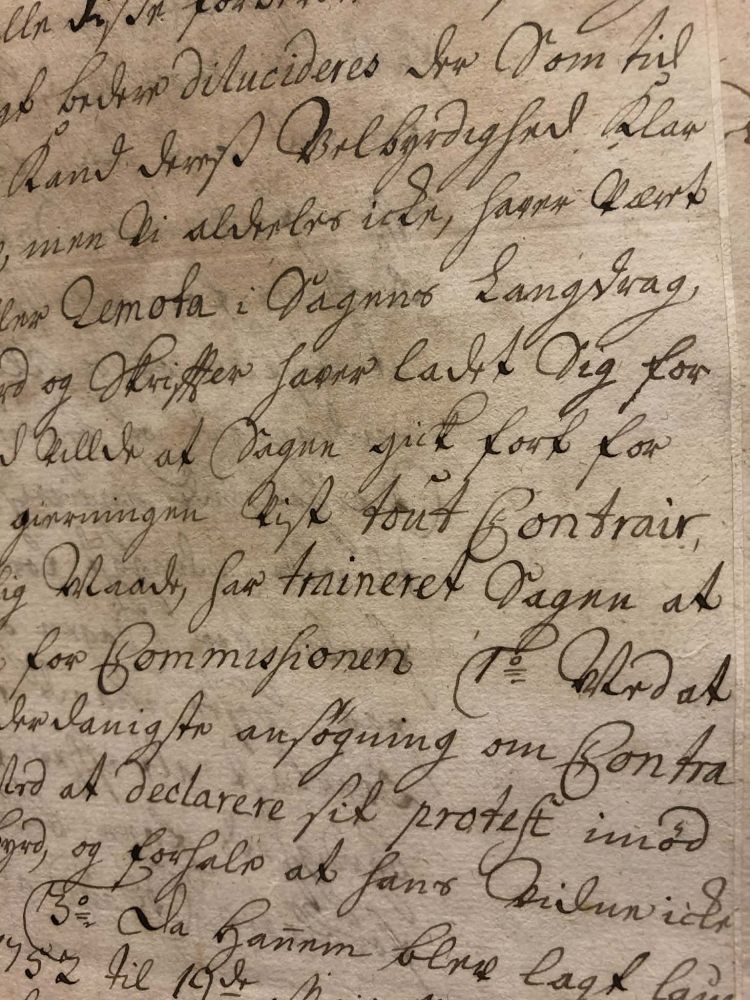 alle disse
bedere dilucideres der Som tid
Kand dereß Velbyrdighed Klar
men Vi aldeeles icke, haver Været
Remota i Sagens Langdrag,
og Skriffter haver ladet Sig for
Villde at Sagen gick fort for
gierningen Vist tout Contrair,
Maade, har traineret Sagen at
for Commissionen (1º Ved at
derdanigste ansøgning om Contra
Ved at declarere sit protest imod
byrd, og forhale at hans Vidne icke
(3º Da Hannem blev lagt
1752 til 19de